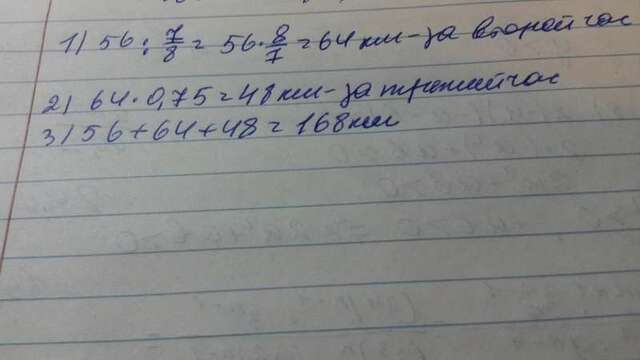 1) 56 : 7/8 = 56 · 8/7 = 64 км - за второй час
2) 64 · 0,75 = 48 км - за третий час
3) 56 + 64 + 48 = 168 км